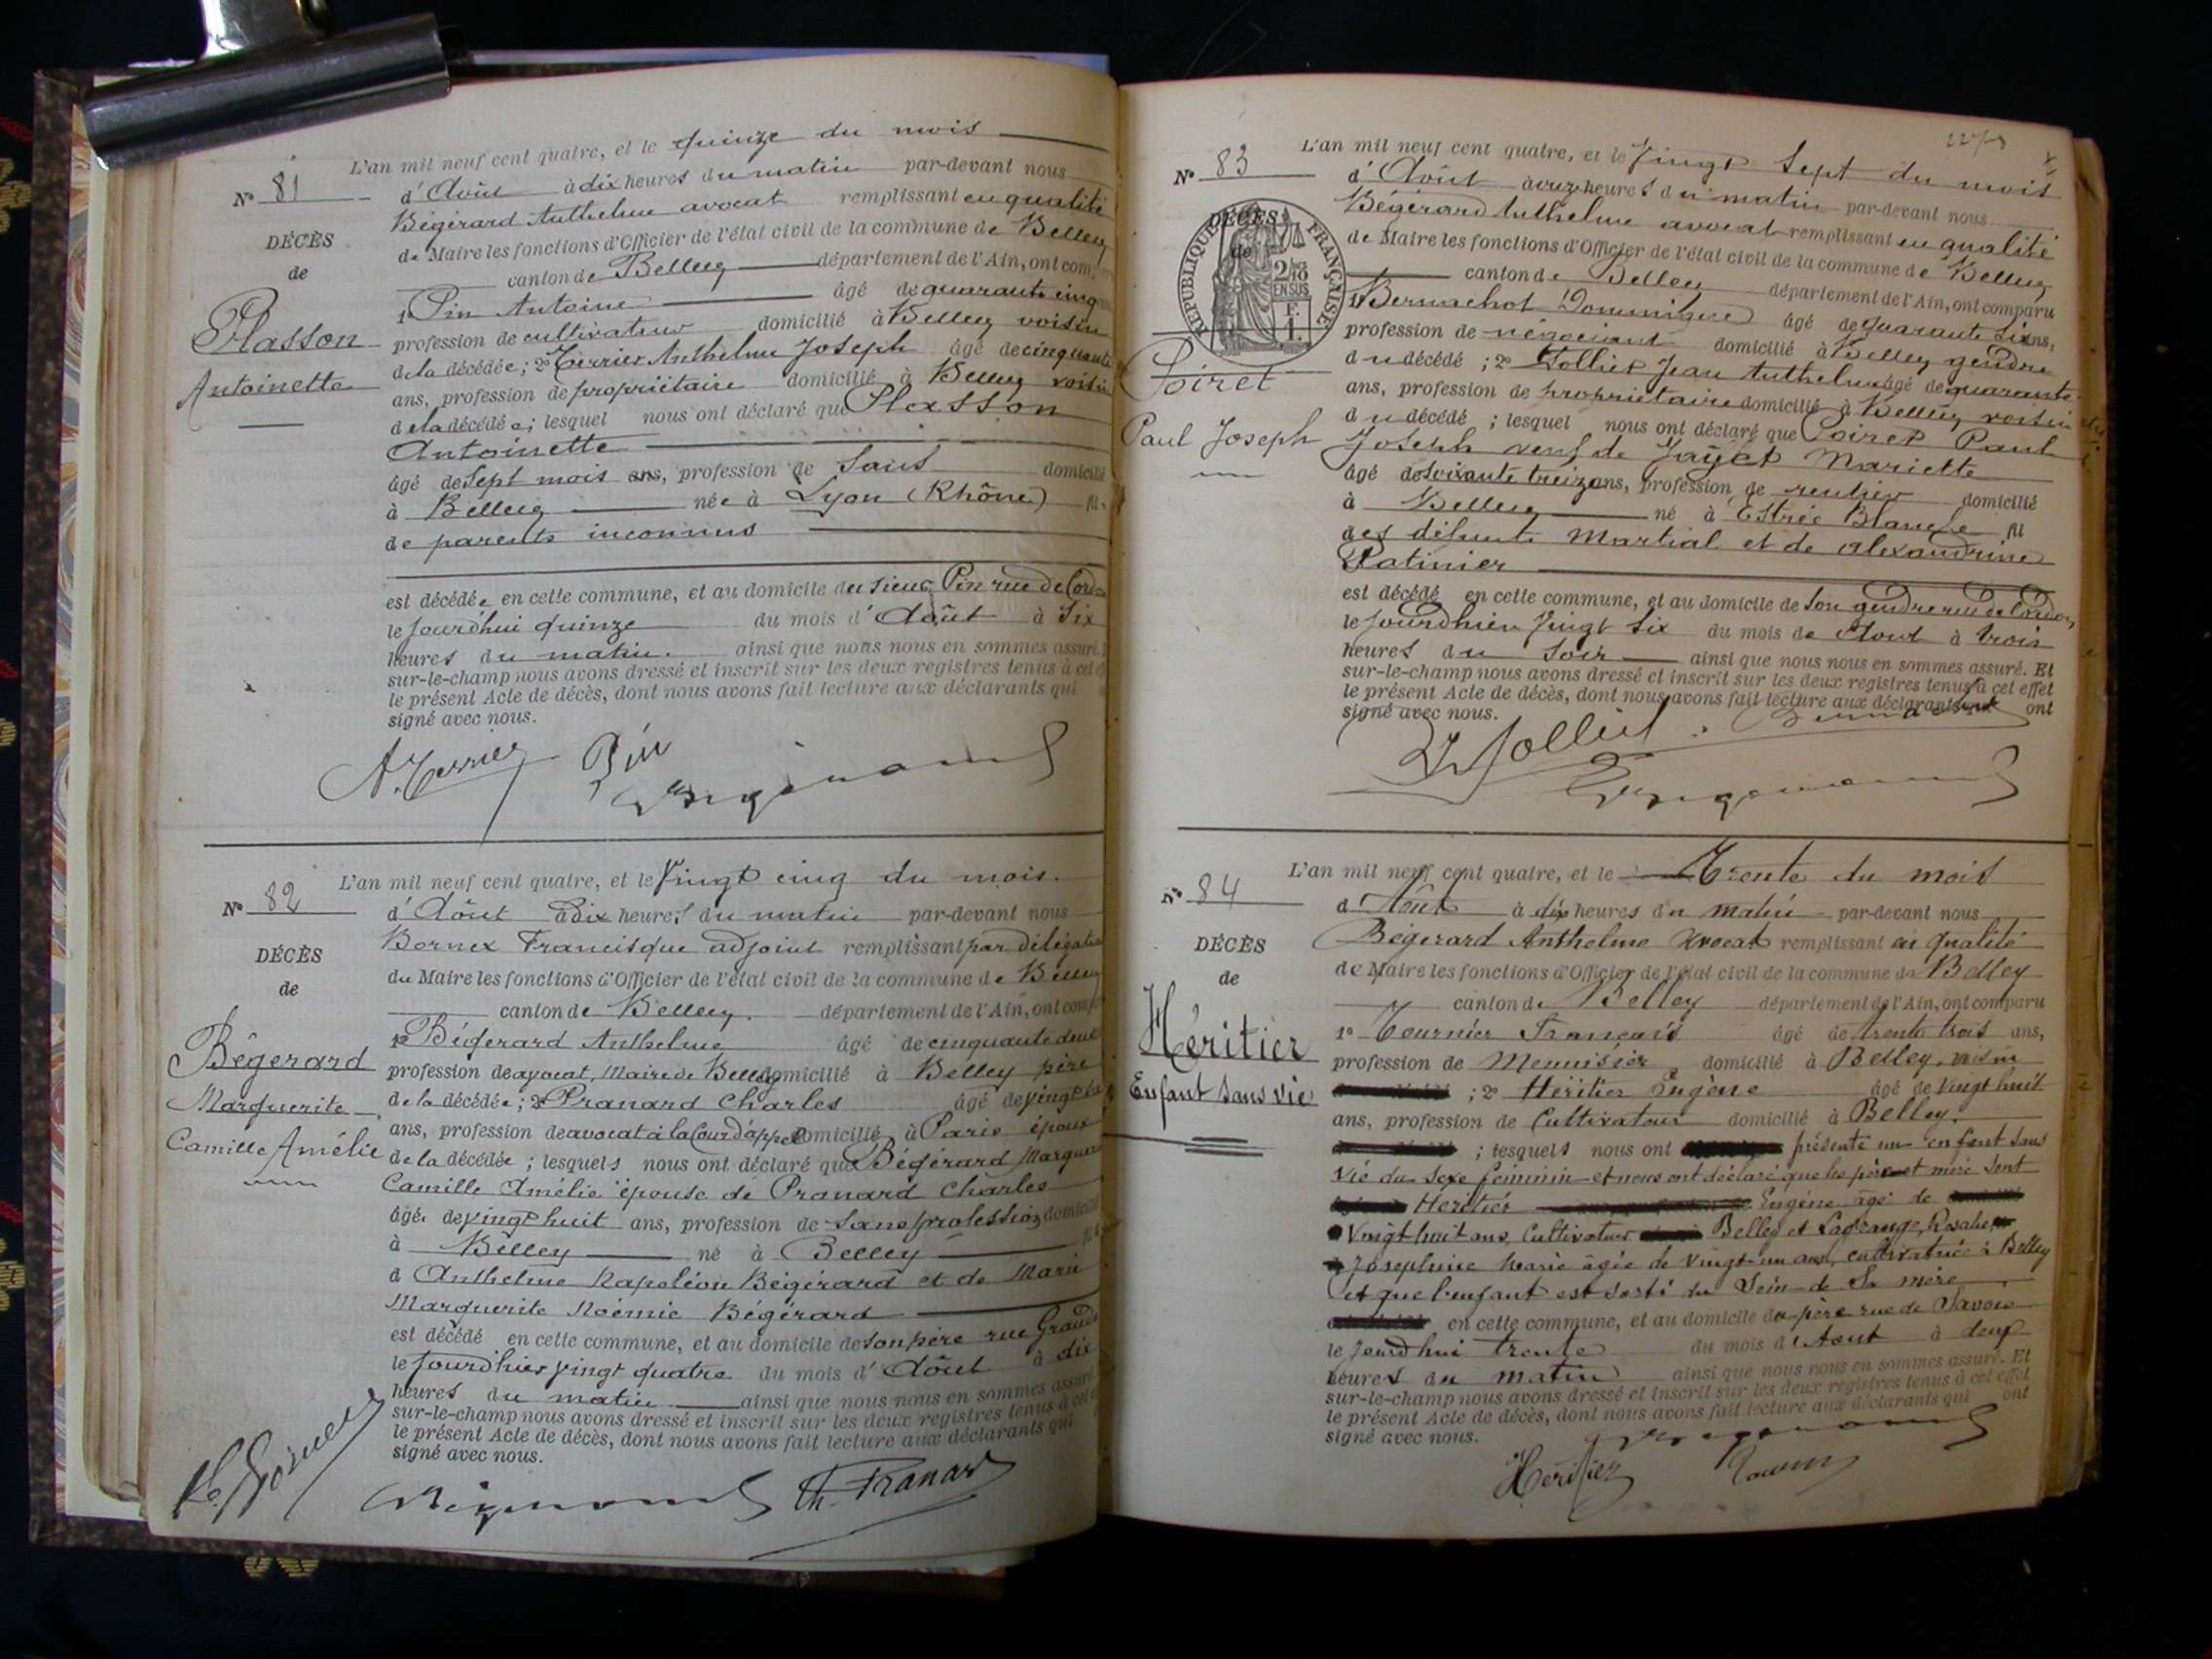 L'an mil neuf cent quatre, et le quinze du mois
N° 81
d'Août à dix heures du matin par-devant nous
Bégérard Anthelme avocat remplissant en qualité
DÉCÈS
de Maire les fonctions d'Officier de l'état civil de la commune de Belley
de
canton de Belley département de l'Ain, ont comparu
1° Pin Antoine âgé de quarante cinq
Plasson
profession de cultivateur domicilié à Belley voisin
de la décédée; 2° Terrier Anthelme Joseph âgé de cinquante
Antoinette
ans, profession de propriétaire domicilié à Belley voisin
de la décédée; lesquel nous ont déclaré que Plasson
Antoinette
âgé de Sept mois ans, profession de Sans domicilié
à Belley née à Lyon (Rhône) fil
de parents inconnus
est décédée en cette commune, et au domicile du sieur Pin rue de
le jourd'hui quinze du mois d'Août à Six
heures du matin. ainsi que nous nous en sommes assuré.
sur-le-champ nous avons dressé et inscrit sur les deux registres tenus à cet
le présent Acte de décès, dont nous avons fait lecture aux déclarants qui
signé avec nous.
A. Terrier Pin
L'an mil neuf cent quatre, et le Vingt cinq du mois.
N° 82
d'Août à dix heures du matin par-devant nous
Bornex Francisque adjoint remplissant par délégation
DÉCÈS
du Maire les fonctions d'Officier de l'état civil de la commune de Belley
de
canton de Belley. département de l'Ain, ont
1° Bégerard Anthelme âgé de cinquante deux
Bégerard
profession de avocat, Maire de Belley domicilié à Belley père
Marguerite
de la décédée; 2° Pranard Charles âgé de
ans, profession de avocat à la Cour d'appel domicilié à Paris époux
Camille Amélie
de la décédée; lesquels nous ont déclaré que Bégérard
Camille Amélie épouse de Pranard Charles
âgé de vingt huit ans, profession de Sans profession domicilié
à Belley né à Belley
d Anthelme Napoléon Bégérard et de Marie
Marguerite Noémie Bégérard
est décédé en cette commune, et au domicile de son père rue
le jourd'hier vingt quatre du mois d'Août à dix
heures du matin ainsi que nous nous en sommes assuré
sur-le-champ nous avons dressé et inscrit sur les deux registres tenus à cet
le présent Acte de décès, dont nous avons fait lecture aux déclarants qui
signé avec nous.
Ch. Pranard
L'an mil neuf cent quatre, et le Vingt Sept du mois
N° 83
d'Août à onze heures du matin par-devant nous
Bégérard Anthelme avocat remplissant en qualité
DÉCÈS
de
RÉPUBLIQUE FRANÇAISE
2/10 EN SUS
F. 1.
de Maire les fonctions d'Officier de l'état civil de la commune de Belley
canton de Belley département de l'Ain, ont comparu
1° Bernachot Dominique âgé de quarante Six ans,
profession de négociant domicilié à Belley gendre
Poiret
du décédé; 2° Jollier Jean Anthelme âgé de quarante
ans, profession de propriétaire domicilié à Belley voisin
Paul Joseph
du décédé; lesquel nous ont déclaré que Poiret Paul
Joseph veuf de Mariette
âgé de soixante treize ans, profession de rentier domicilié
à Belley né à Estrée Blanche fil
des défunts Martial et de Alexandrine
Patinier
est décédé en cette commune, et au domicile de son gendre rue de
le jourd'hier Vingt Six du mois de Aout à trois
heures du Soir ainsi que nous nous en sommes assuré. Et
sur-le-champ nous avons dressé et inscrit sur les deux registres tenus à cet effet
le présent Acte de décès, dont nous avons fait lecture aux déclarants qui ont
signé avec nous.
L'an mil neuf cent quatre, et le Trente du mois
N° 84
d'Août à dix heures du matin par-devant nous
Bégerard Anthelme Avocat remplissant en qualité
DÉCÈS
de Maire les fonctions d'Officier de l'état civil de la commune de Belley
de
canton de Belley département de l'Ain, ont comparu
1° Tournier François âgé de trente trois ans,
Héritier
profession de Menuisier domicilié à Belley, voisin
Enfant sans vie
; 2° Héritier Eugène âgé de vingt huit
ans, profession de Cultivateur domicilié à Belley.
; lesquels nous ont présenté un enfant sans
vie du sexe féminin et nous ont déclaré que les père et mère sont
Héritier Eugène âgé de
Vingt huit ans, Cultivateur Belley et Lagrange, Rosalie
Josephine Marie âgée de vingt-un ans, cultivatrice à Belley
et que l'enfant est sorti du Sein de Sa mère
en cette commune, et au domicile du père rue de Savoie
le jourd'hui trente du mois d'Aout à deux
heures du matin ainsi que nous nous en sommes assuré. Et
sur-le-champ nous avons dressé et inscrit sur les deux registres tenus à cet effet
le présent Acte de décès, dont nous avons fait lecture aux déclarants qui ont
signé avec nous.
Héritier